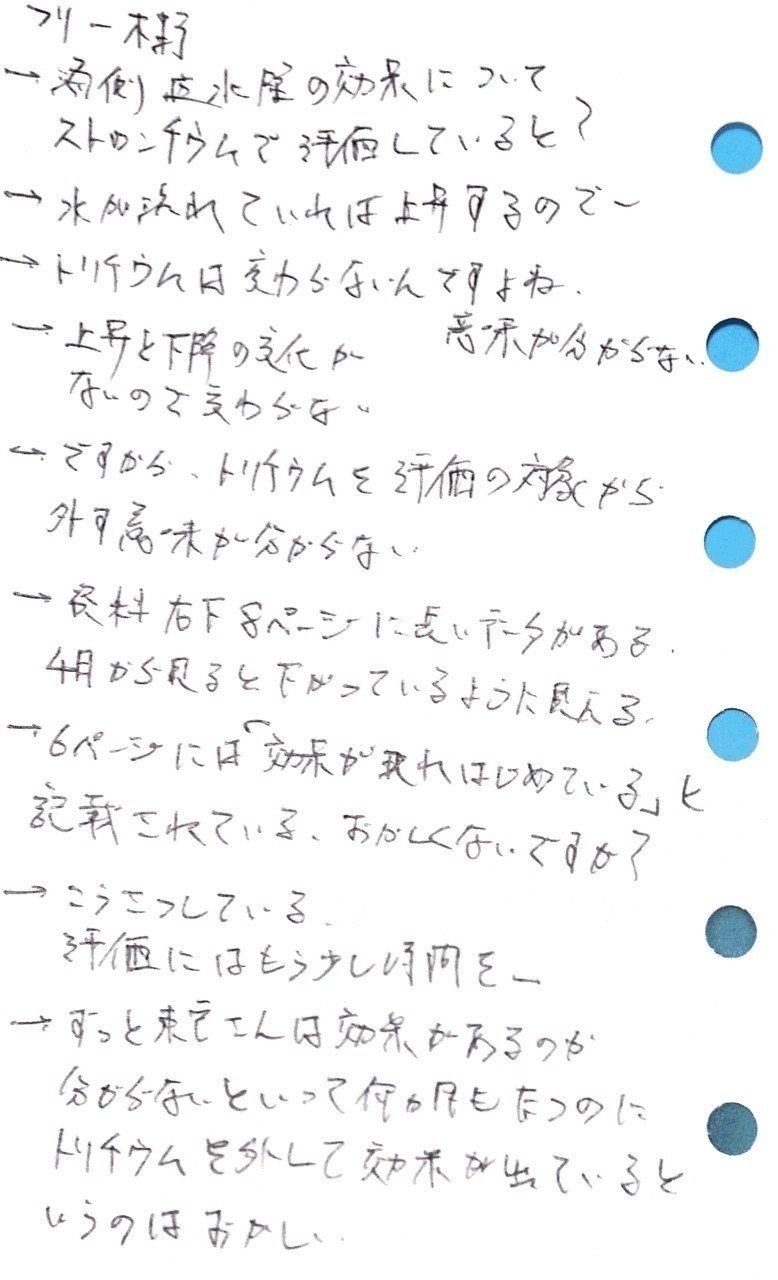 フリー木野
→ 海側遮水壁の効果について
ストロンチウムで評価していると?
→ 水が流れていれば上昇するのでー
→ トリチウムは変わらないんですよね.
意味が分からない.
→ 上昇と下降の変化が
ないので変わらない
→ ですから、トリチウムを評価の対象から
外す意味が分からない.
→ 資料右下8ページに長いデータがある.
4月から見ると下がっているように見える.
→ 6ページには「効果が現れはじめている」と
記載されている、おかしくないですか?
→ こうさつしている.
評価にはもう少し時間をー
→ ずっと東電さんは効果があるのか
分からないといって何か月もたつのに
トリチウムを外して効果が出ていると
いうのはおかしい.